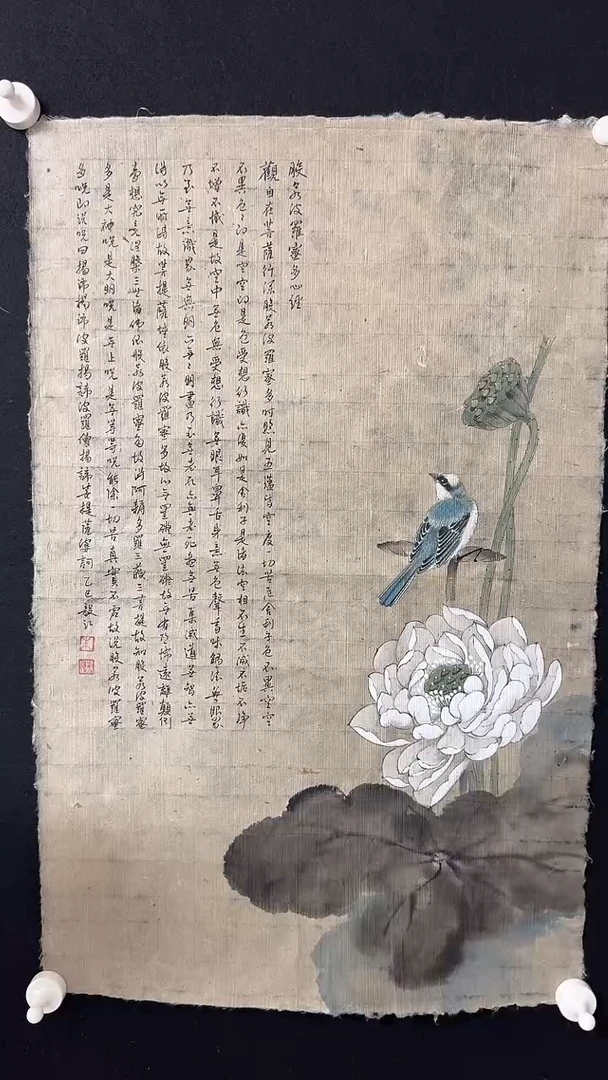 般若波羅蜜多心經
觀自在菩薩行深般若波羅蜜多時照見五蘊皆空度一切苦厄舍利子色不異空空
不異色々即是空空即是色受想行識亦復如是舍利子是諸法空相不生不滅不垢不淨
不增不減是故空中無色無受想行識無眼耳鼻舌身意無色聲香味觸法無眼界
乃至無意識界無無明亦無々明盡乃至無老死亦無老死盡無苦集滅道無智亦無
得以無所得故菩提薩埵依般若波羅蜜多故心無罣礙無罣礙故無有恐怖遠離顛倒
夢想究竟涅槃三世諸佛依般若波羅蜜多故得阿耨多羅三藐三菩提故知般若波羅蜜
多是大神呪是大明呪是無上呪是無等等呪能除一切苦真實不虛故說般若波羅蜜
多呪即說呪曰揭諦揭諦波羅揭諦波羅僧揭諦菩提薩婆訶 乙巳